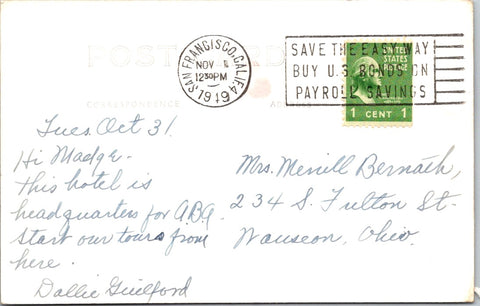 POST CARD
SAN FRANCISCO, CALIF. 4
NOV 1
12 30 PM
1949
SAVE THE EASY WAY!
BUY U.S. BONDS ON
PAYROLL SAVINGS
UNITED
STATES
POSTAGE
1 CENT 1
CORRESPONDENCE
ADDRESS
Tues. Oct 31.
Hi Madge -
This hotel is
headquarters for A.B.A.
Start our tours from
here.
Dollie Guilford
Mrs. Merrill Bernath,
234 S. Fulton St-
Wauseon, Ohio.